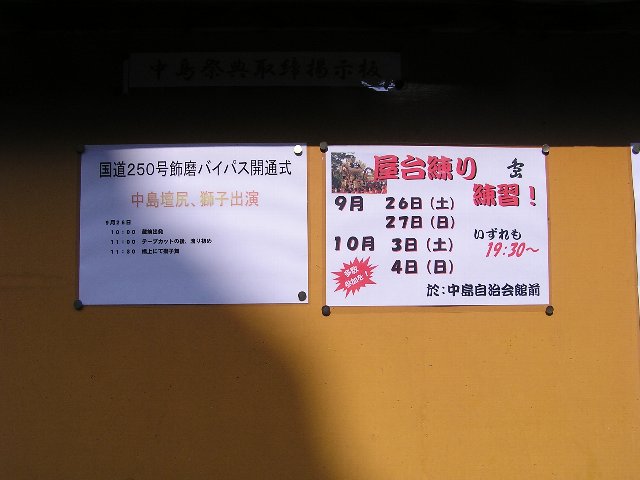 中島祭典取締掲示板
国道250号飾磨バイパス開通式
中島壇尻、獅子出演
9月26日
10:00 蔵前出発
11:00 テープカットの後、渡り初め
11:30 橋上にて獅子舞
屋台練り
練習!
9月 26日(土)
27日(日)
10月 3日(土)
4日(日)
いずれも
19:30~
多数
参加を!
於:中島自治会館前